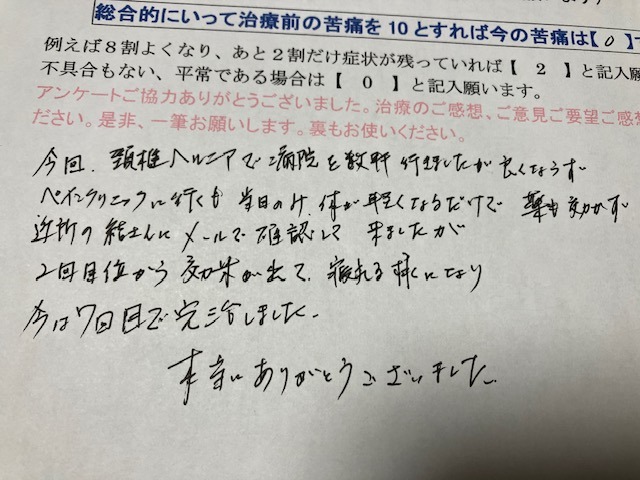 総合的にいって治療前の苦痛を10とすれば今の苦痛は【0】
例えば8割よくなり、あと2割だけ症状が残っていれば【 2 】と記入願
不具合もない、平常である場合は【 0 】と記入願います。
アンケートご協力ありがとうございました。治療のご感想、ご意見ご要望ご感
ださい。是非、一筆お願いします。裏もお使いください。
今回、頚椎ヘルニアで病院を数軒行きましたが良くならず
ペインクリニックに行くも当日のみ、体が軽くなるだけで薬も効かず
近所の メールで確認して来ましたが
2回目位から効果が出て、寝れる様になり
今は7回目で完治しました。
本当にありがとうございました。